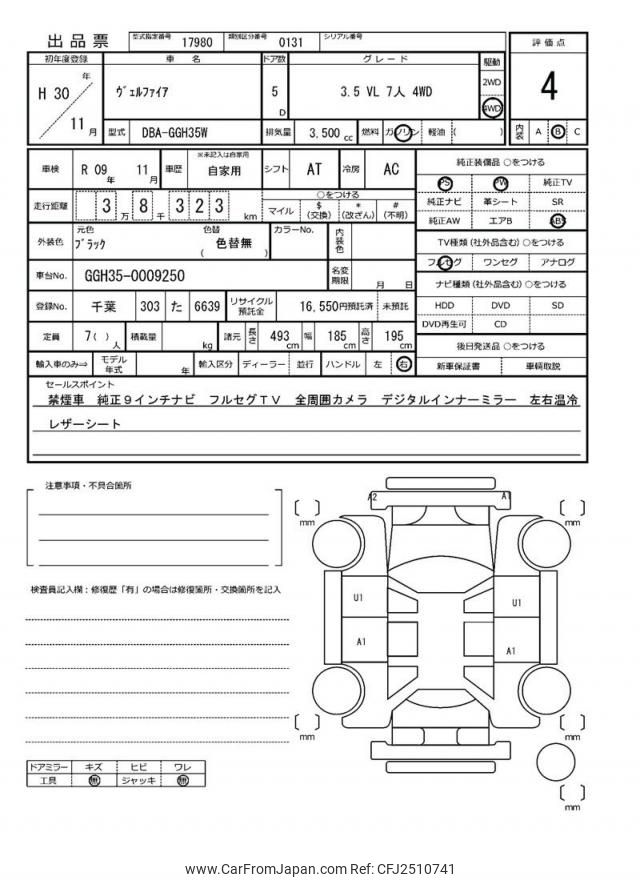 出品票 型式指定番号 17980 類別区分番号 0131 シリアル番号
初年度登録 車名 ドア数 グレード 駆動 評価点
H 30 年 11 月 ヴェルファイア 5 D 3.5 VL 7人 4WD 2WD 4WD 4
型式 DBA-GGH35W 排気量 3,500 cc 燃料 ガソリン 軽油 ( ) 内装 A B C
車検 R 09 年 11 月 車歴 ※未記入は自家用 自家用 シフト AT 冷房 AC 純正装備品 ○をつける
PS PW 純正TV
走行距離 3 万 8 千 3 2 3 km ○をつける
マイル $ (交換) * (改ざん) # (不明)
純正ナビ 革シート SR
純正AW エアB ABS
外装色 元色 ブラック 色替 ( 色替無 ) カラーNo. 内装色
TV種類 (社外品含む) ○をつける
フルセグ ワンセグ アナログ
車台No. GGH35-0009250 名変期限 月 日
ナビ種類 (社外品含む) ○をつける
登録No. 千葉 303 た 6639 リサイクル預託金 16,550円預託済 未預託
HDD DVD SD
DVD再生可 CD
定員 7( ) 人 積載量 kg 諸元 長さ 493 cm 幅 185 cm 高さ 195 cm
後日発送品 ○をつける
輸入車のみ⇒ モデル年式 年 輸入区分 ディーラー 並行 ハンドル 左 右
新車保証書 車輌取説
セールスポイント
禁煙車 純正9インチナビ フルセグTV 全周囲カメラ デジタルインナーミラー 左右温冷
レザーシート
注意事項・不具合箇所
A2 A1
mm mm
検査員記入欄：修復歴「有」の場合は修復箇所・交換箇所を記入
U1 U1
A1 A1
mm mm
ドアミラー キズ ヒビ ワレ
工具 無 ジャッキ 無
mm
www.CarFromJapan.com Ref: CFJ2510741